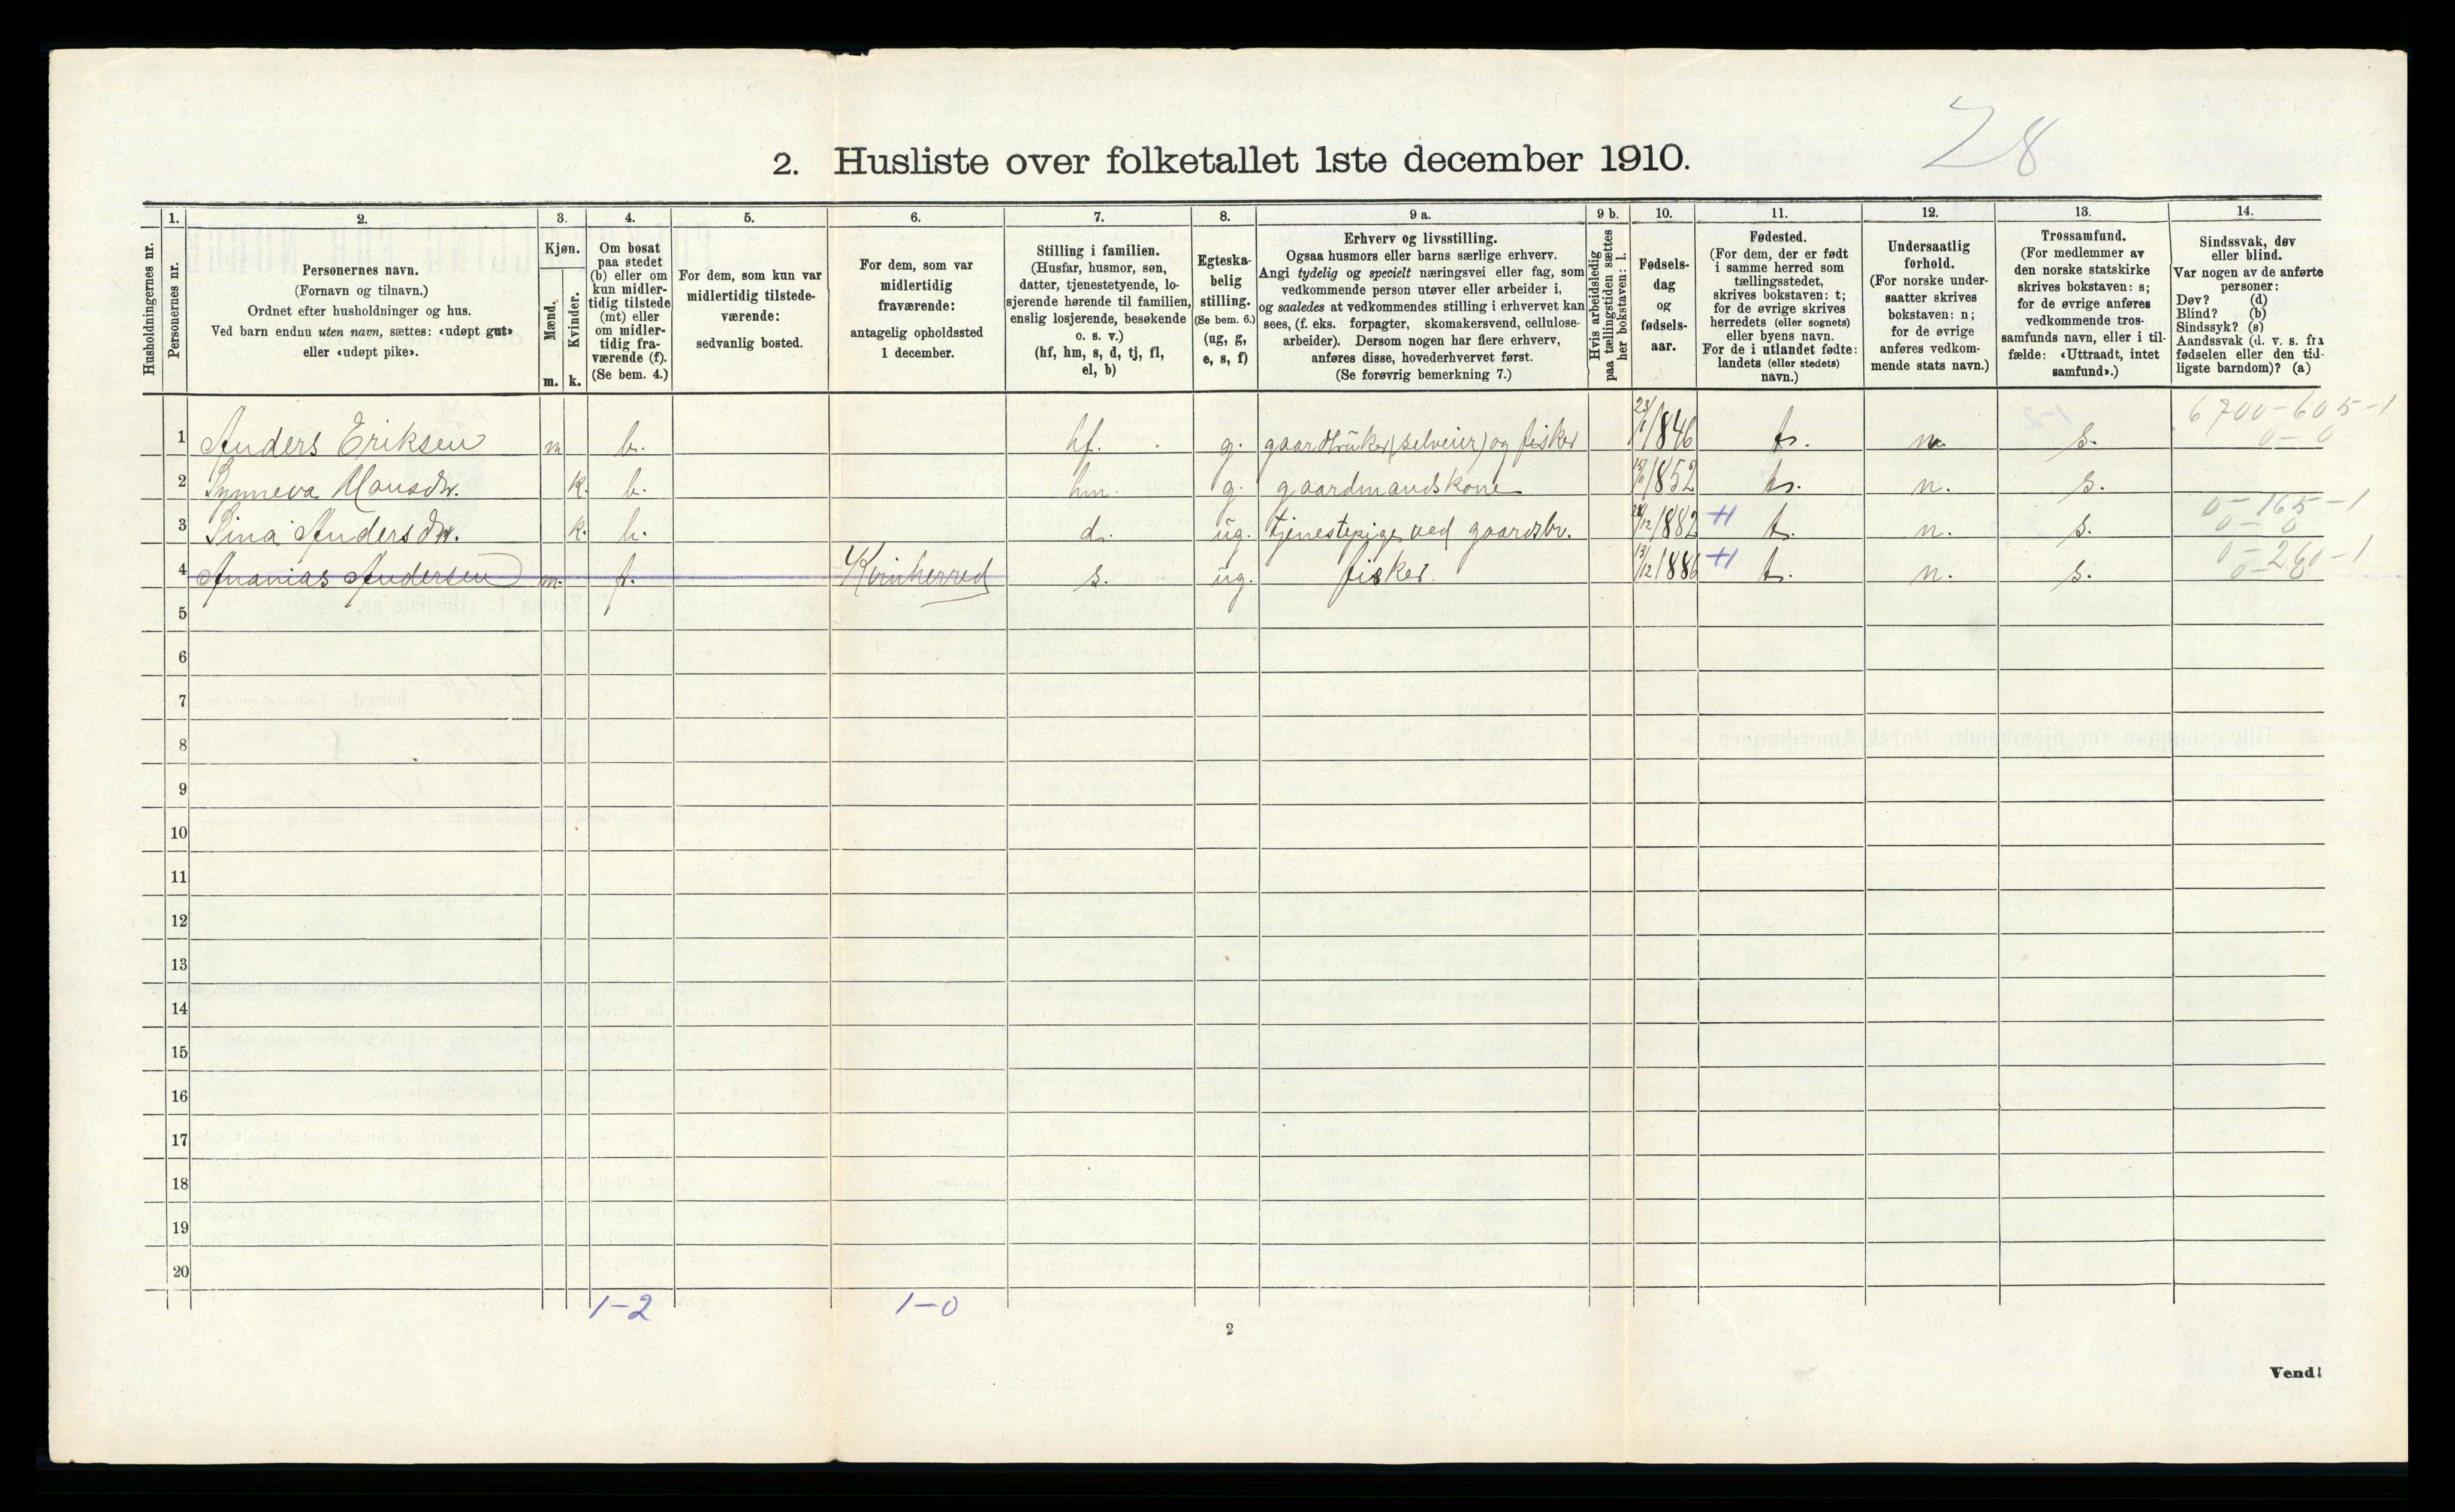 28
2. Husliste over folketallet 1ste december 1910.
Husholdningernes nr.
1.
Personernes nr.
2.
Personernes navn.
(Fornavn og tilnavn.)
Ordnet efter husholdninger og hus.
Ved barn endnu uten navn, sættes: «udøpt gut»
eller «udøpt pike».
3.
Kjøn.
Mænd.
Kvinder.
m. k.
4.
Om bosat
paa stedet
(b) eller om
kun midler-
tidig tilstede
(mt) eller
om midler-
tidig fra-
værende (f).
(Se bem. 4.)
5.
For dem, som kun var
midlertidig tilstede-
værende:
sedvanlig bosted.
6.
For dem, som var
midlertidig
fraværende:
antagelig opholdssted
1 december.
7.
Stilling i familien.
(Husfar, husmor, søn,
datter, tjenestetyende, lo-
sjerende hørende til familien,
enslig losjerende, besøkende
o. s. v.)
(hf, hm, s, d, tj, fl,
el, b)
8.
Egteska-
belig
stilling.
(Se bem. 6.)
(ug, g,
e, s, f)
9 a.
Erhverv og livsstilling.
Ogsaa husmors eller barns særlige erhverv.
Angi tydelig og specielt næringsvei eller fag, som
vedkommende person utøver eller arbeider i,
og saaledes at vedkommendes stilling i erhvervet kan
sees, (f. eks. forpagter, skomakersvend, cellulose-
arbeider). Dersom nogen har flere erhverv,
anføres disse, hovederhvervet først.
(Se forøvrig bemerkning 7.)
9 b.
Hvis arbeidsledig
paa tællingstiden sættes
her bokstaven: l.
10.
Fødsels-
dag
og
fødsels-
aar.
11.
Fødested.
(For dem, der er født
i samme herred som
tællingsstedet,
skrives bokstaven: t;
for de øvrige skrives
herredets (eller sognets)
eller byens navn.
For de i utlandet fødte:
landets (eller stedets)
navn.)
12.
Undersaatlig
forhold.
(For norske under-
saatter skrives
bokstaven: n;
for de øvrige
anføres vedkom-
mende stats navn.)
13.
Trossamfund.
(For medlemmer av
den norske statskirke
skrives bokstaven: s;
for de øvrige anføres
vedkommende tros-
samfunds navn, eller i til-
fælde: «Uttraadt, intet
samfund».)
14.
Sindssvak, døv
eller blind.
Var nogen av de anførte
personer:
Døv? (d)
Blind? (b)
Sindssyk? (s)
Aandssvak (d. v. s. fra
fødselen eller den tid-
ligste barndom)? (a)
6700-605-1
0-0
1 Anders Eriksen m b. hf. g. gaardbruker (selveier) og fisker 1846 t. n. s.
2 Synneva Monsdtr. k. b. hm. g. gaardmandskone 1852 t. n. s.
0-165-1
0-0
3 Sina Andersdtr. k. b. d. ug. tjenestepige ved gaardsbr. /12 1882 t. n. s.
0-260-1
0-0
4 Ananias Andersen m. f. Kvinherred s. ug. fisker 13/12 1886 t. n. s.
5
6
7
8
9
10
11
12
13
14
15
16
17
18
19
20
1-2 1-0
2
Vend!